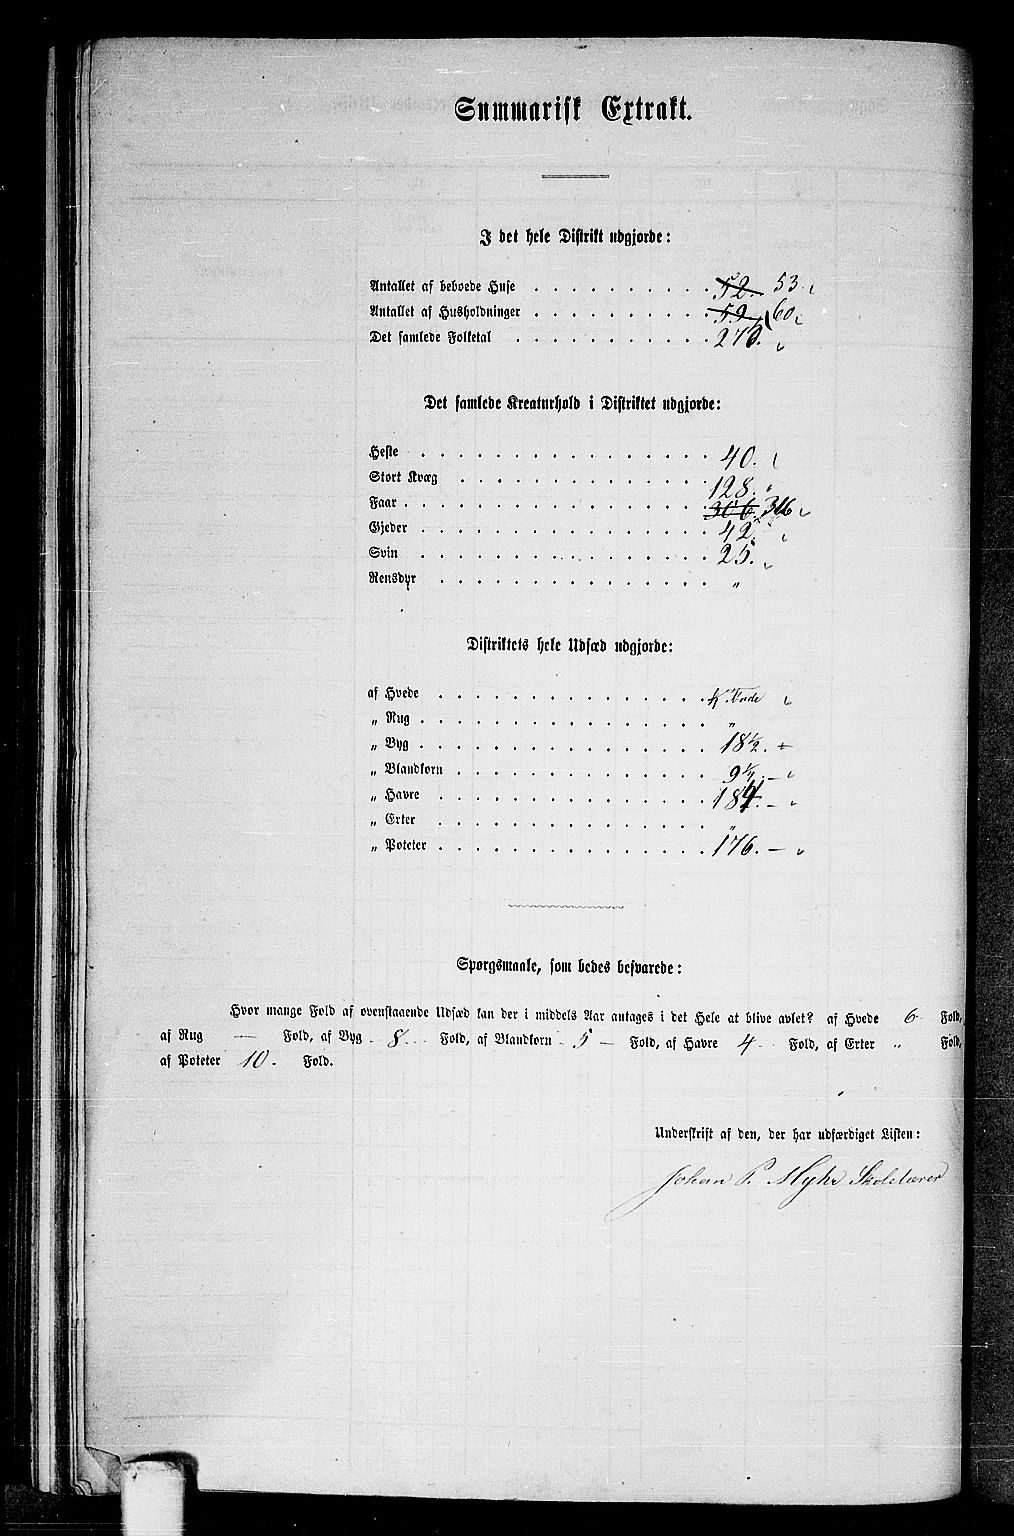 Summarisk Extrakt.
I det hele Distrikt udgjorde:
Antallet af beboede Huse . . . . . . . . . . 52. 53.
Antallet af Husholdninger . . . . . . . . . . 59. 60
Det samlede Folketal . . . . . . . . . . . 276.
Det samlede Kreaturhold i Distriktet udgjorde:
Heste . . . . . . . . . . . . . . . . 40.
Stort Kvæg . . . . . . . . . . . . . . 128.
Faar . . . . . . . . . . . . . . . . . 306. 316
Gjeder . . . . . . . . . . . . . . . 42.
Svin . . . . . . . . . . . . . . . . 25.
Rensdyr . . . . . . . . . . . . . . . „
Distriktets hele Udsæd udgjorde:
af Hvede . . . . . . . . . . . . . . . Tnde
„ Rug . . . . . . . . . . . . . . . . „
„ Byg . . . . . . . . . . . . . . . . 18½.
„ Blandkorn . . . . . . . . . . . . . . 9½. –
„ Havre . . . . . . . . . . . . . . . 184. –
„ Erter . . . . . . . . . . . . . . . „
„ Poteter . . . . . . . . . . . . . . . 176. –
Spørgsmaale, som bedes besvarede:
Hvor mange Fold af ovenstaaende Udsæd kan der i middels Aar antages i det Hele at blive avlet? af Hvede 6 Fold,
af Rug — Fold, af Byg 8 Fold, af Blandkorn 5 – Fold, af Havre 4 Fold, af Erter „ Fold,
af Poteter 10. Fold.
Underskrift af den, der har udfærdiget Listen:
Johan P. Myhr Skolelærer